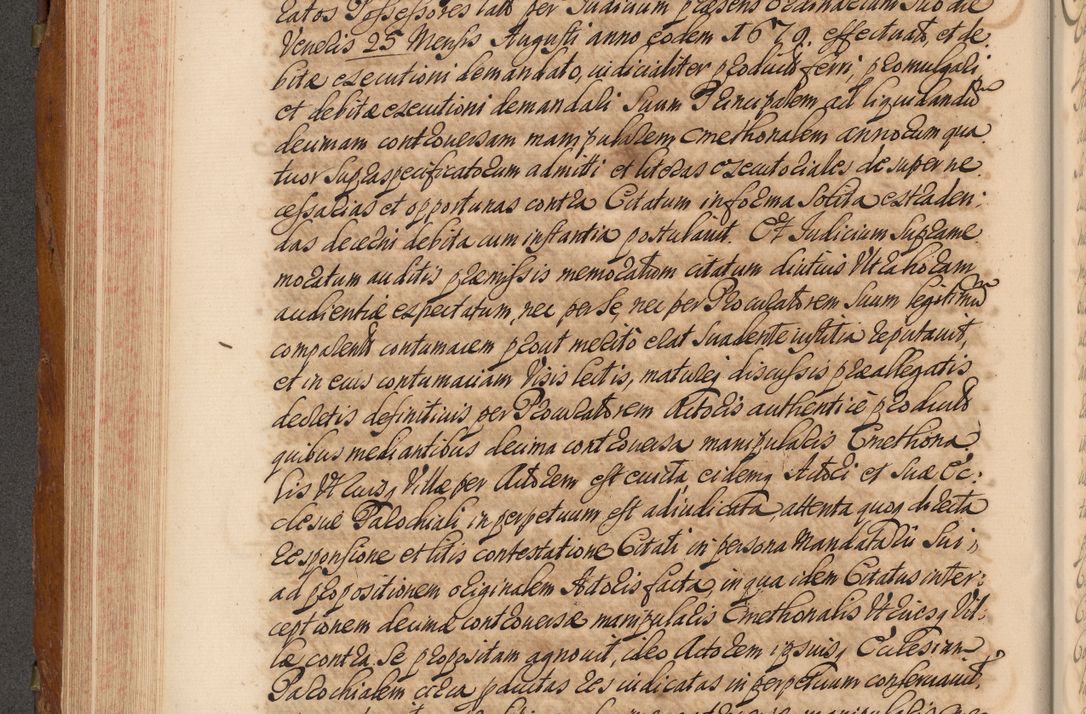 latos Possessores lati per Judicium præsens ordinarium sub die
Veneris 25 Mensis Augusti anno eodem 1679. effectuat, et de
bitæ executioni demandato, iudicialiter producit ferri, promulgati
et debitæ executioni demandati Suum Principalem ad liquidandum
decimam controversam manipularem Cmethonalem annorum qua
tuor supraspecificatorum admitti et literas executoriales desuper ne
cessarias et opportunas contra Citatum in forma solita extraden:
das decerni debita cum instantia postulavit. Et Judicium supreme
moratum auditis præmissis memoratum citatum diutius Ultra horam
audientiæ expectatum, nec per Se, nec per Procuratorem Suum legitimum
comparent contumacem prout merito erat Suadente iustitia reputavit,
et in eius contumaciam Visis lectis, matureq discussis præallegatis
decretis definitivis per Procuratorem Actoris authenticè productis
quibus mediantibus decima controversa manipularis Cmethona
lis Utriusq Villæ per Actorem est evicta eidemq Actori et Suæ Ec:
clesiæ Parochiali in perpetuum est adiudicata, attenta quoq directa
responsione et litis contestatione Citati in persona Mandatarii Sui
ad propositionem originalem Actoris facta, in qua idem Citatus inter:
ceptionem decimæ controversæ manipularis Cmethonalis Utriusq Vil:
læ contra Se propositam agnovit, ideo Actorem ipsiusq Ecclesiam
Parochialem circa prioritas res iudicatas in perpetuum conservavit,